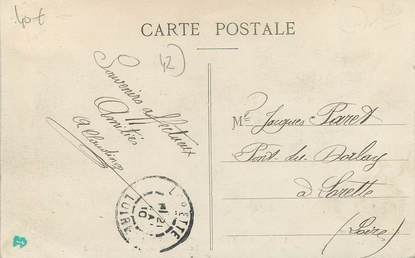 40€
CARTE POSTALE
42
Souvenirs affectueux
Amitiés
A. Claudine
Mr Jacques Paret
Pont du Dorlay
à Lorette
(Loire)
LORETTE
21
10
LOIRE